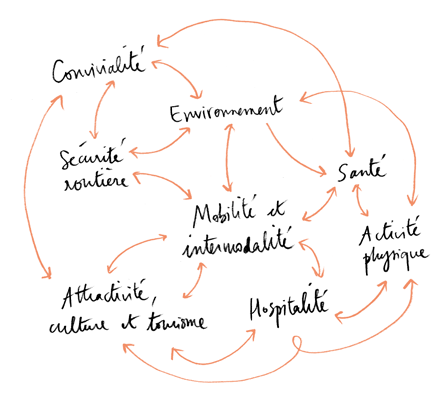 Convivialité
Environnement
Sécurité
routière
Santé
Mobilité et
intermodalité
Activité
physique
Attractivité,
culture et tourisme
Hospitalité